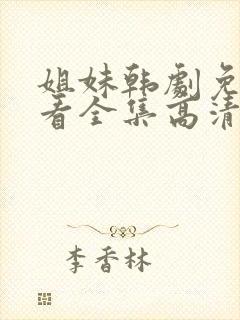 姐妹韩剧免
看全集高清
李香林